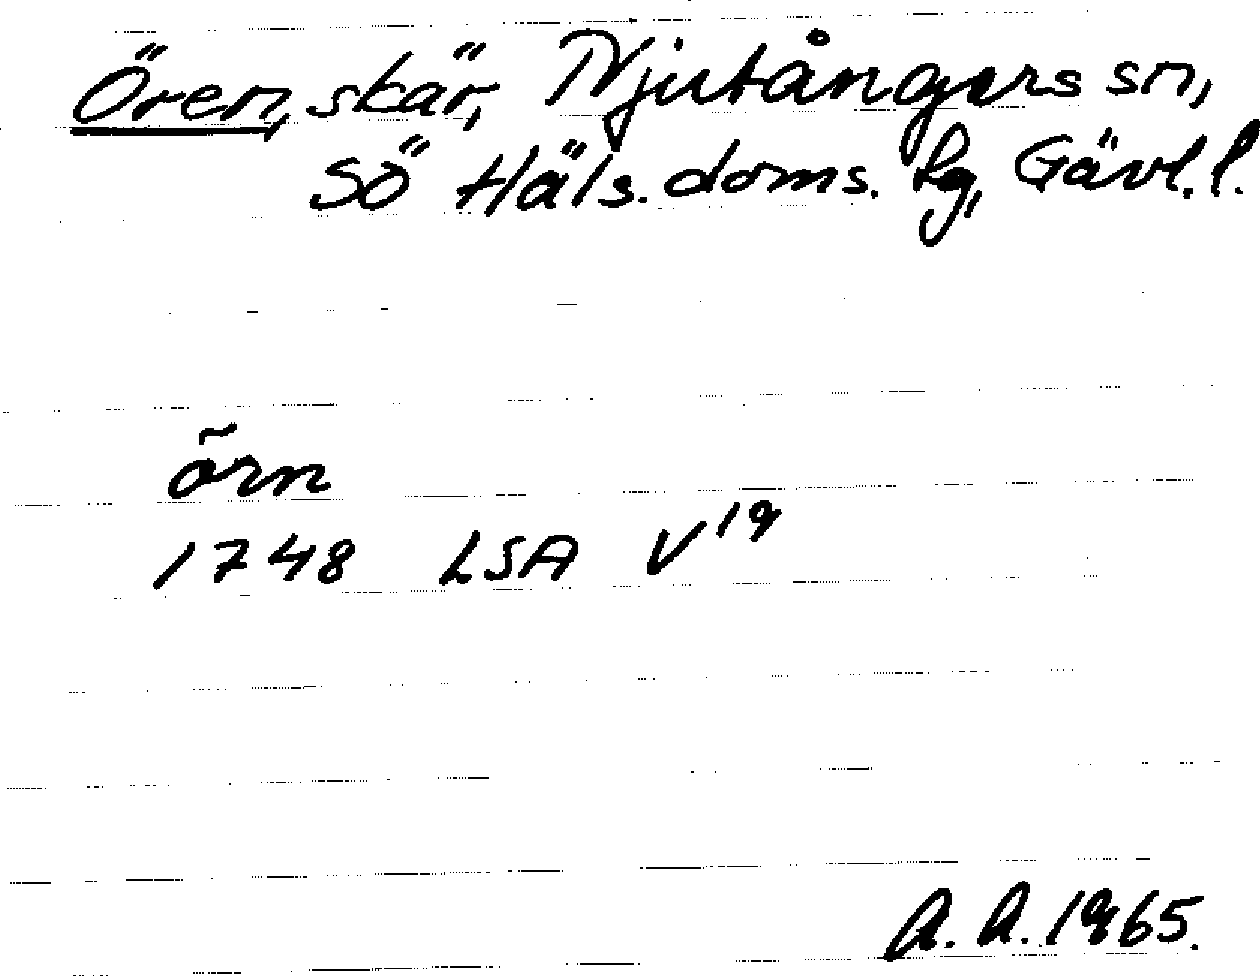 Ören, skär, Njutångers sn,
SÖ Häls. doms. lg, Gävl. l.
õrn
1748 LSA V¹⁹
A. A. 1965.